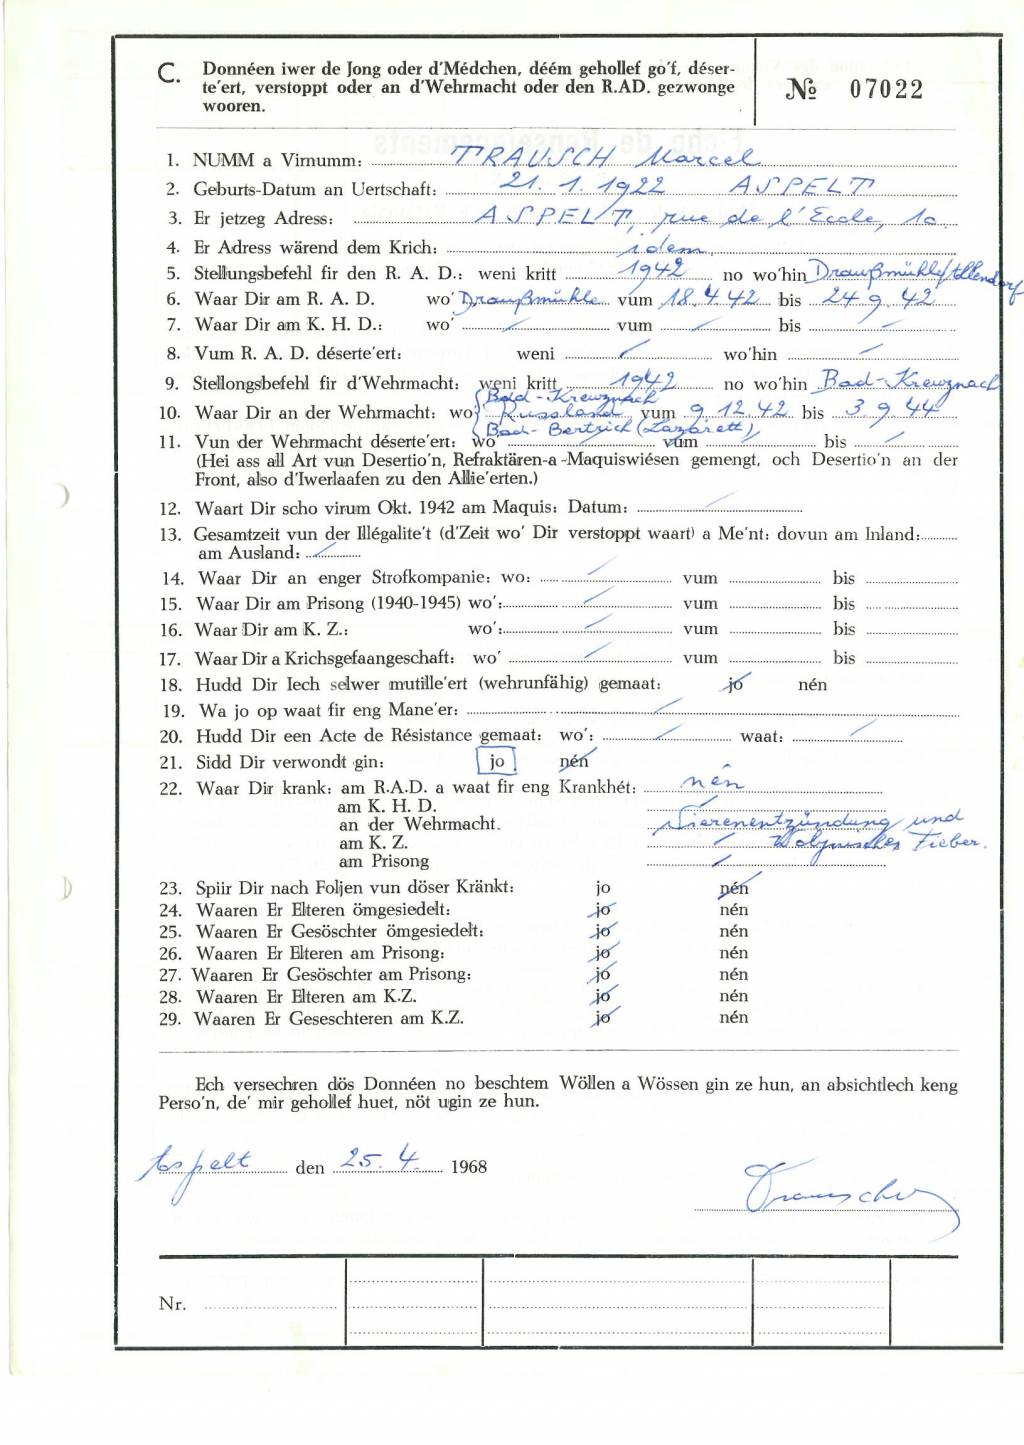 C. Donnéen iwer de Jong oder d'Médchen, déém gehollef go'f, déser-
te'ert, verstoppt oder an d'Wehrmacht oder den R.AD. gezwonge
wooren.
№ 07022
1. NUMM a Virnumm: TRAUSCH Marcel
2. Geburts-Datum an Uertschaft: 21. 1. 1922 ASPELT
3. Er jetzeg Adress: ASPELT, rue de l'Ecole, 10
4. Er Adress wärend dem Krich: idem
5. Stellungsbefehl fir den R. A. D.: weni kritt 1942 no wo'hin Draußmühle/Allendorf
6. Waar Dir am R. A. D. wo' Draußmühle vum 18.4.42 bis 24 9. 42
7. Waar Dir am K. H. D.: wo' / vum / bis /
8. Vum R. A. D. déserte'ert: weni / wo'hin /
9. Stellongsbefehl fir d'Wehrmacht: weni kritt 1942 no wo'hin Bad-Kreuznach
Bad-Kreuznach
10. Waar Dir an der Wehrmacht: wo' Russland vum 9. 12. 42 bis 3 9. 44
Bad-Bertrich (Lazarett)
11. Vun der Wehrmacht déserte'ert: wo' / vum / bis /
(Hei ass all Art vun Desertio'n, Refraktären-a-Maquiswiésen gemengt, och Desertio'n an der
Front, also d'Iwerlaafen zu den Allie'erten.)
12. Waart Dir scho virum Okt. 1942 am Maquis: Datum: /
13. Gesamtzeit vun der Illégalite't (d'Zeit wo' Dir verstoppt waart) a Me'nt: dovun am Inland:
am Ausland: /
14. Waar Dir an enger Strofkompanie: wo: / vum bis
15. Waar Dir am Prisong (1940-1945) wo': / vum bis
16. Waar Dir am K. Z.: wo': / vum bis
17. Waar Dir a Krichsgefaangeschaft: wo' / vum bis
18. Hudd Dir Iech selwer mutille'ert (wehrunfähig) gemaat: jo nén
19. Wa jo op waat fir eng Mane'er: /
20. Hudd Dir een Acte de Résistance gemaat: wo': / waat: /
21. Sidd Dir verwondt gin: jo nén
22. Waar Dir krank: am R.A.D. a waat fir eng Krankhét: nên
am K. H. D. /
an der Wehrmacht. Nierenentzündung und
am K. Z. / Wolynisches Fieber.
am Prisong /
23. Spiir Dir nach Foljen vun döser Kränkt: jo nén
24. Waaren Er Elteren ömgesiedelt: jo nén
25. Waaren Er Gesöschter ömgesiedelt: jo nén
26. Waaren Er Elteren am Prisong: jo nén
27. Waaren Er Gesöschter am Prisong: jo nén
28. Waaren Er Elteren am K.Z. jo nén
29. Waaren Er Geseschteren am K.Z. jo nén
Ech versechren dös Donnéen no beschtem Wöllen a Wössen gin ze hun, an absichtlech keng
Perso'n, de' mir gehollef huet, nöt ugin ze hun.
Aspelt den 25. 4. 1968
Trausch
Nr.